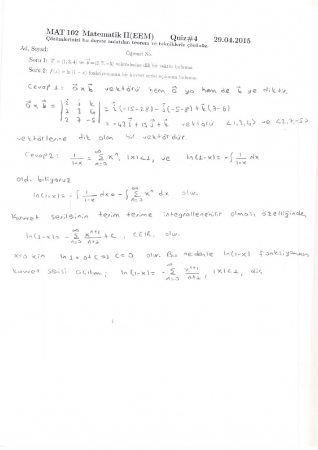 MAT 102 Matematik II(EEM) Quiz#4 29.04.2015
Çözümlerinizi bu derste anlatılan teorem ve tekniklerle çözünüz.
Ad, Soyad: Öğrenci No:
Soru 1: vektörlerine dik bir vektör bulunuz.
Soru 2: f(x) = ln(1 − x) fonksiyonunun bir kuvvet serisi açılımını bulunuz.
Cevap 1: a x b vektörü hem a ya hem de b ye diktir.
a x b = | i j k | = i(-15-28) - j(-5-8) + k(7-6)
2 7 -5 = -43 i + 13 j + k vektörü <1,3,4> ve <2,7,-5>
vektörlerine dik olan bir vektördür.
Cevap 2: 1/(1-x) = Σ xⁿ, |x|<1, ve ln(1-x) = -∫ 1/(1-x) dx
old. biliyoruz
ln(1-x) = -∫ 1/(1-x) dx = -∫ Σ xⁿ dx olur.
Kuvvet serisinin terim terime integrallenebilir olması özelliğinden,
ln(1-x) = - Σ xⁿ⁺¹/(n+1) + C, olur.
x=0 için ln 1 = 0 + C, C = 0 olur. Bu nedenle ln(1-x) fonksiyonunun
kuvvet serisi açılımı; ln(1-x) = - Σ xⁿ⁺¹/(n+1), |x|<1,